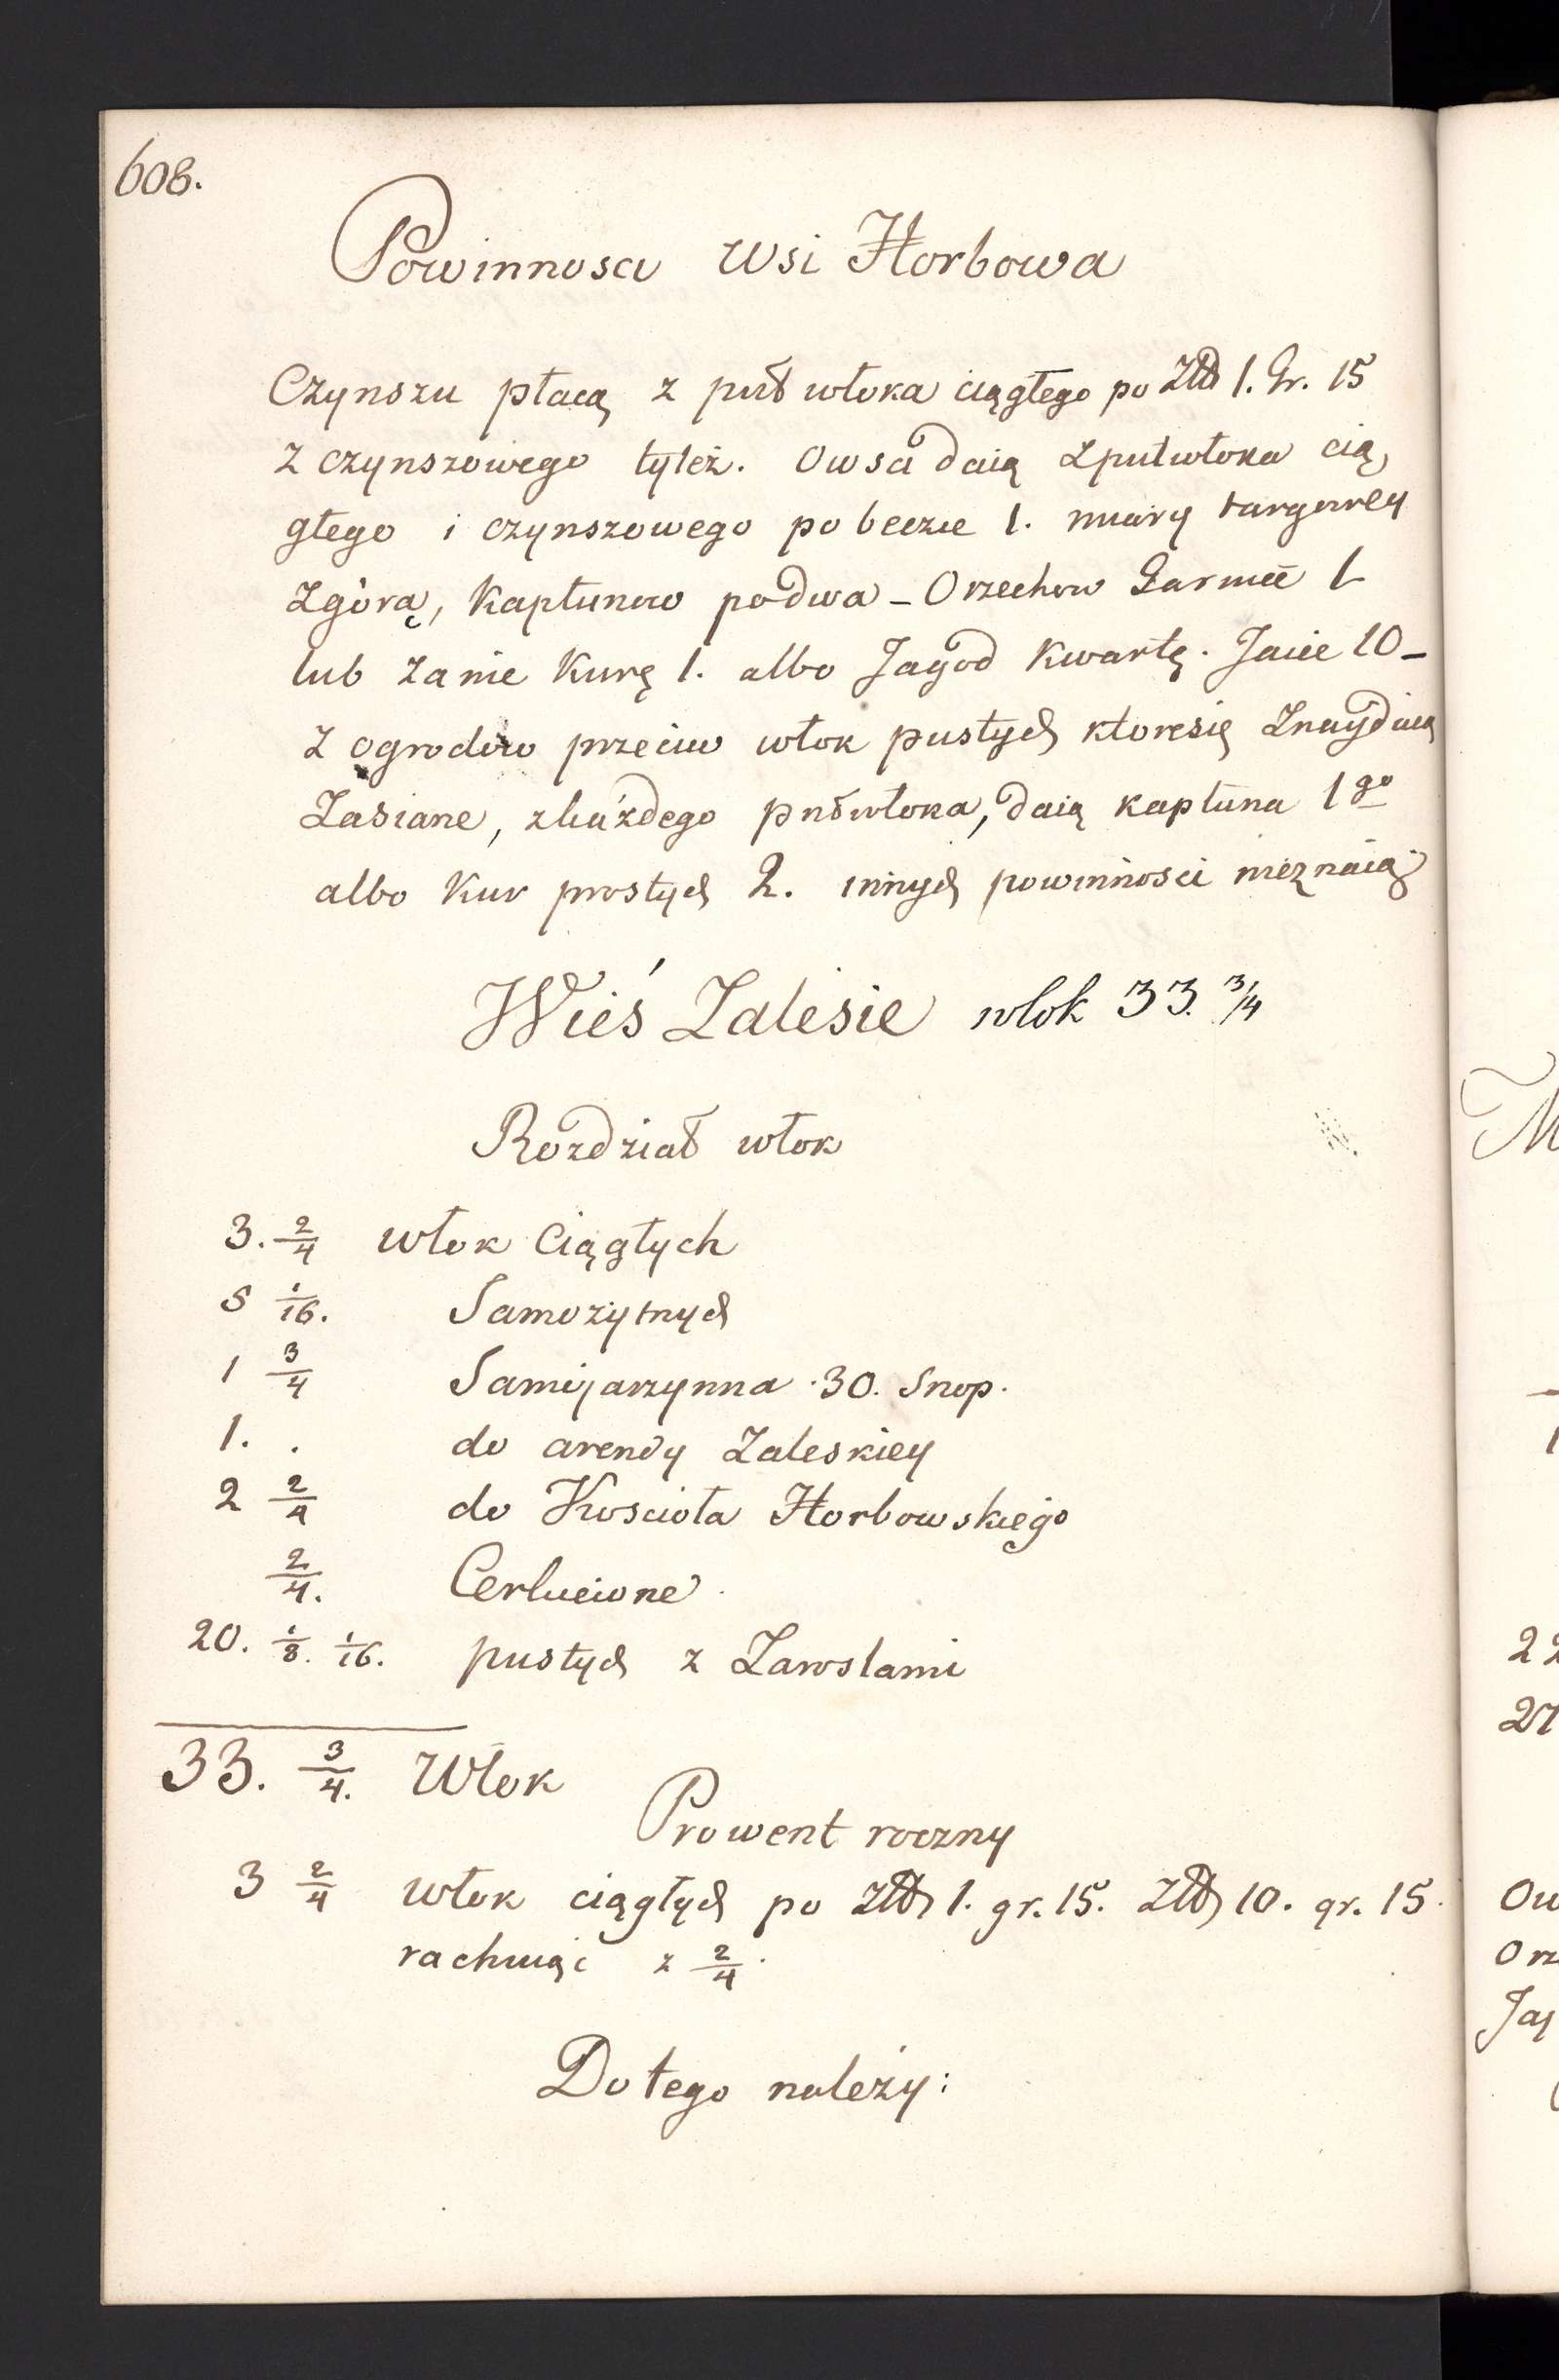 608.
Powinnosci wsi Horbowa
Czynszu płacą z puł włoka ciągłego po Złł 1. Gr. 15
z czynszowego tyleż. Owsa daią zpułwłoka cią
głego i czynszowego po beczce 1. miary targowey
zgórą, Kapłunow podwa - Orzechow Garniec 1
lub zanie Kurę 1. albo Jagod Kwartę. Jaiec 10 -
z ogrodow przeciw włok pustych ktoresię znaydują
Zasiane, zkażdego pułwłoka, daią kapłuna 1go
albo Kur prostych 2. innych powinnosci nieznaią
Wieś Zalesie włok 33. 3/4
Rozdział włok
3. 2/4 włok Ciągłych
5 1/16. Samożytnych
1 3/4 Samijarzynna 30. Snop.
1. . do arendy Zaleskiey
2 2/4 do Koscioła Horbowskiego
2/4.
20. 1/8. 1/16. pustych z Zaroslami
33. 3/4. Włok
Prowent roczny
3 2/4 włok ciągłych po Złł 1. gr. 15. Złł 10. gr. 15.
rachuiąc z 2/4.
Do tego należy:
22
27